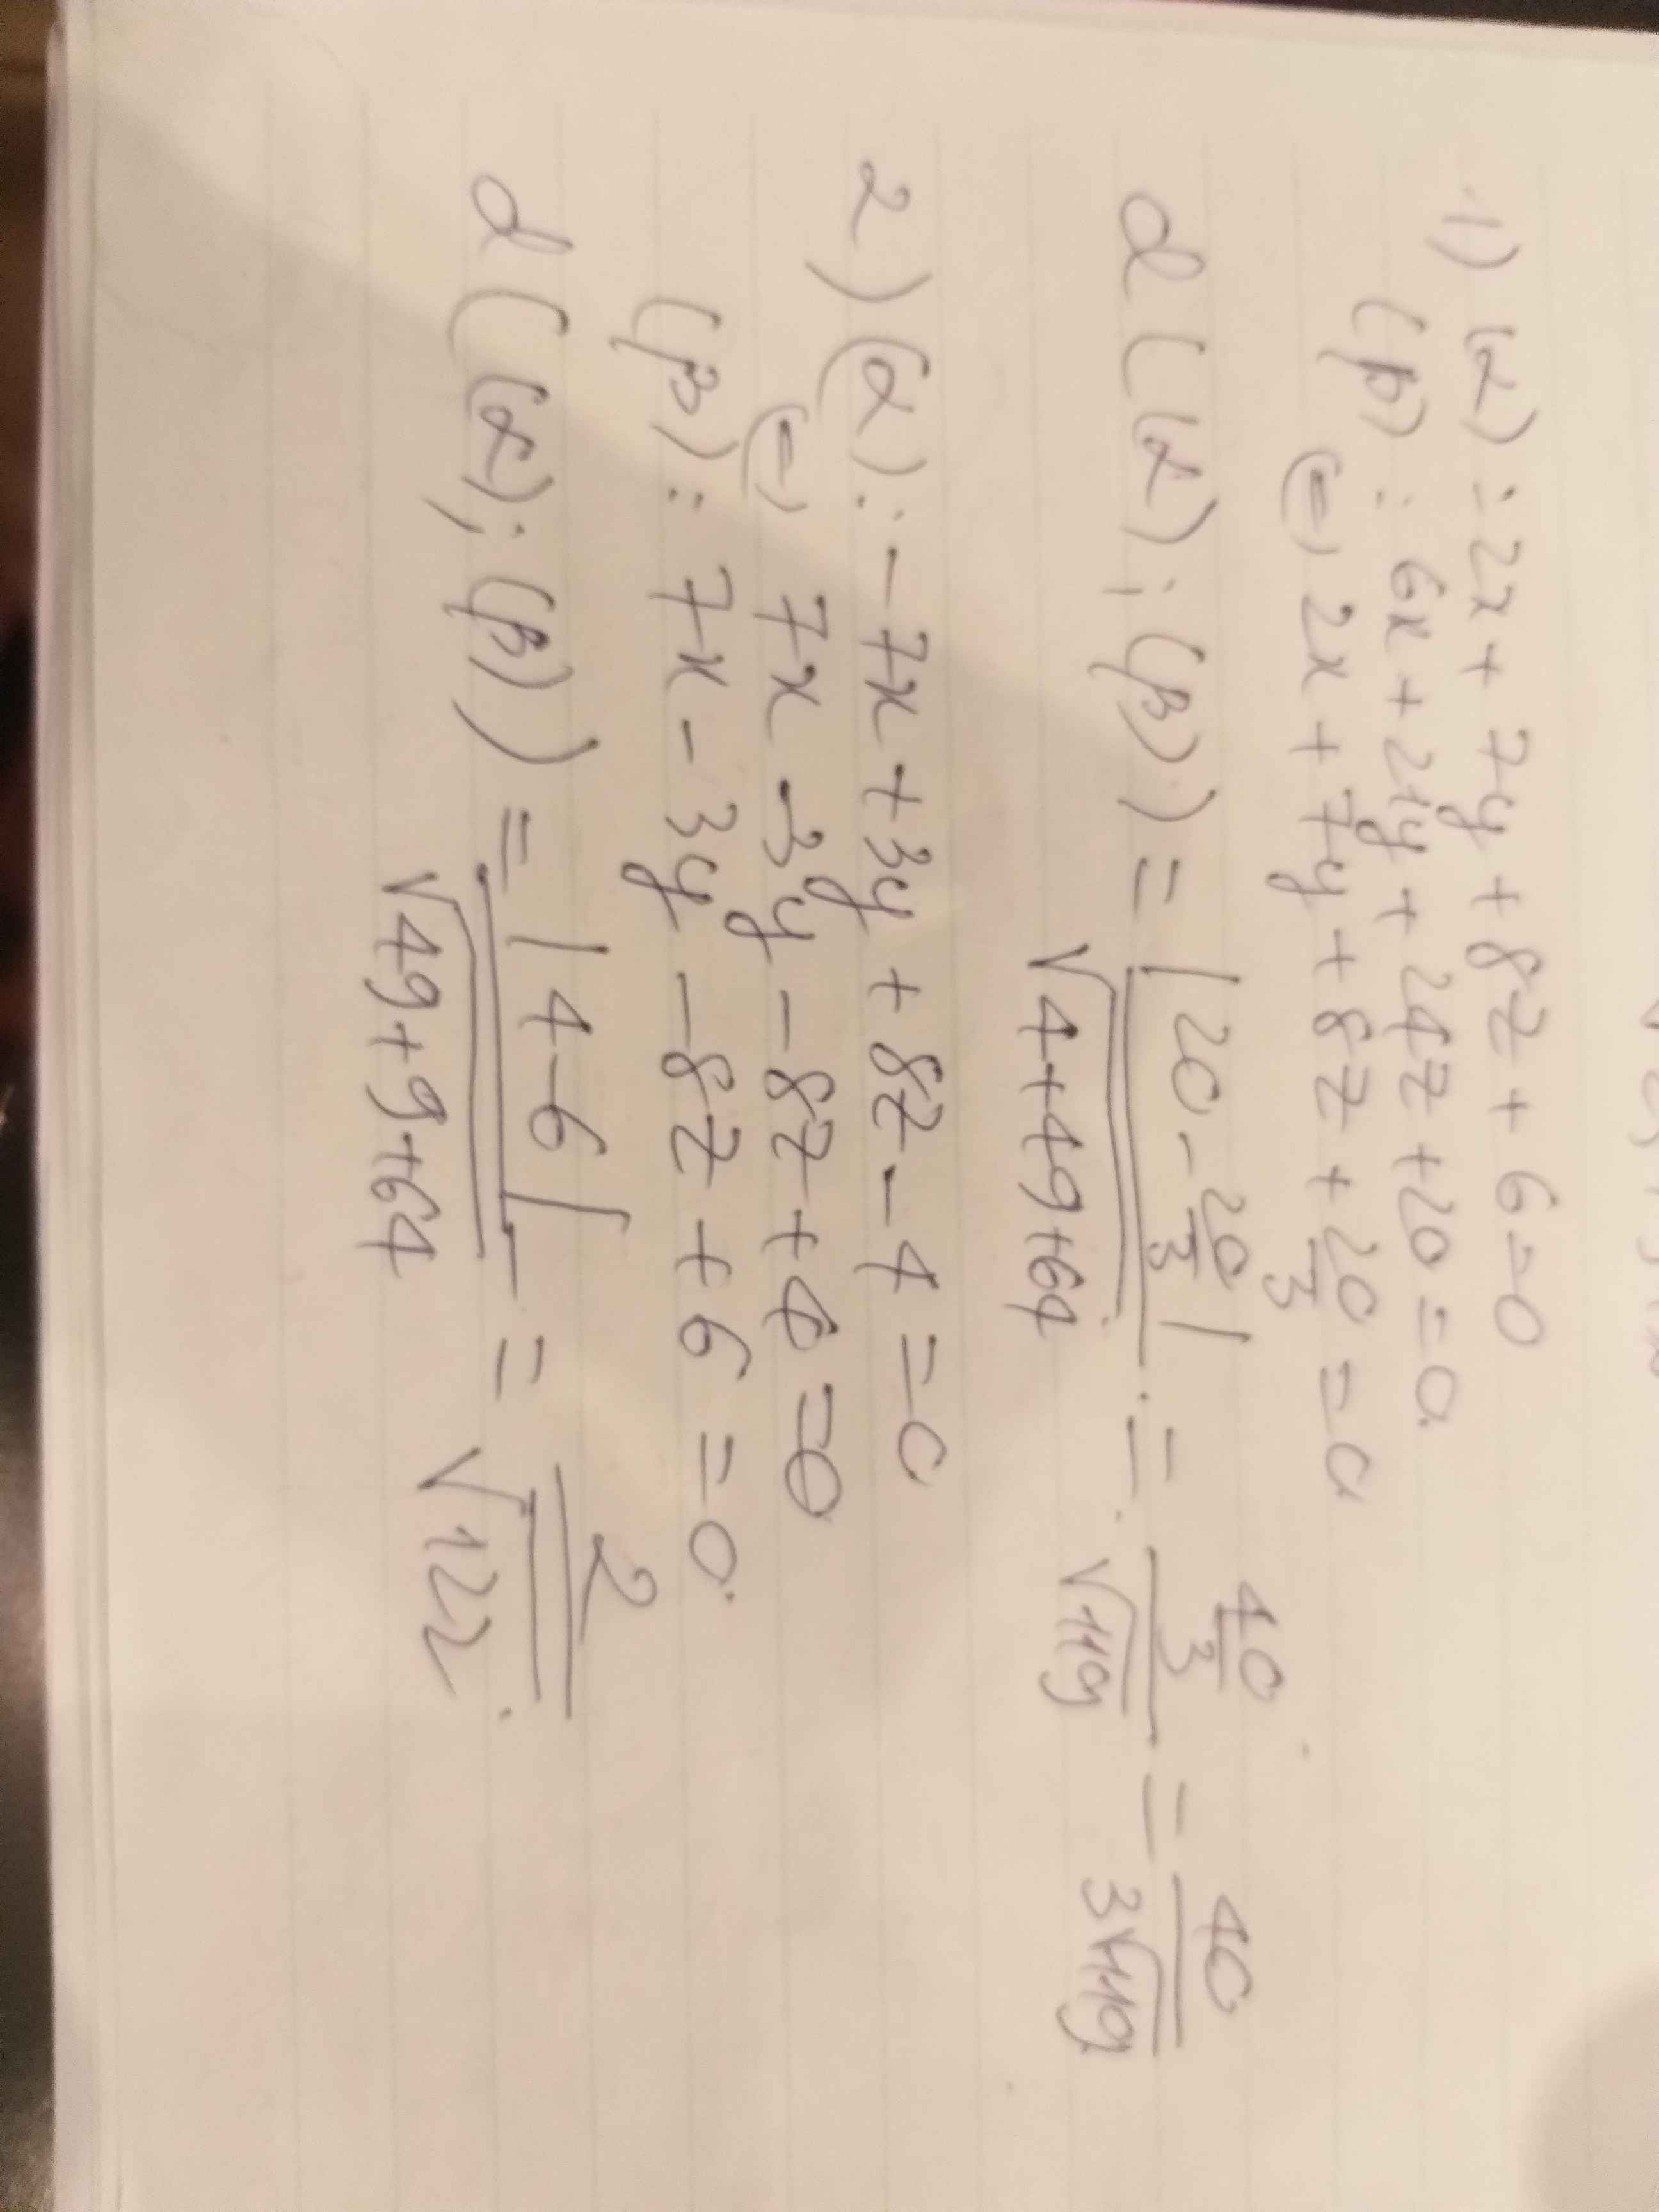 1) (α): 2x + 7y + 8z + 6 = 0
(β): 6x + 21y + 24z + 20 = 0.
(=) 2x + 7y + 8z + 20/3 = 0
d((α); (β)) = |20 - 20/3| / √(4+49+64) = (40/3) / √119 = 40 / 3√119
2) (α): -7x + 3y + 8z - 4 = 0
(=) 7x - 3y - 8z + 4 = 0
(β): 7x - 3y - 8z + 6 = 0.
d((α); (β)) = |4-6| / √(49+9+64) = 2 / √122.